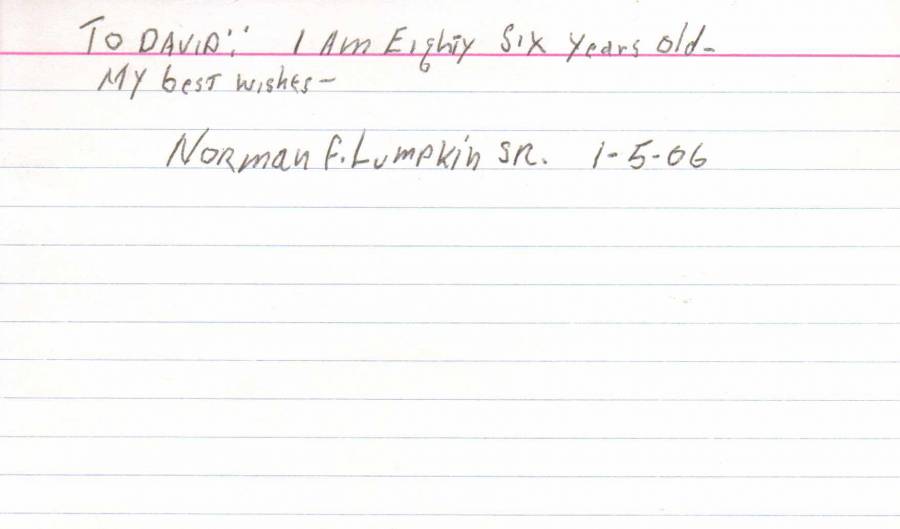 To DAVID:: I Am Eighty Six years old-
My best wishes-
Norman F. Lumpkin SR. 1-5-06